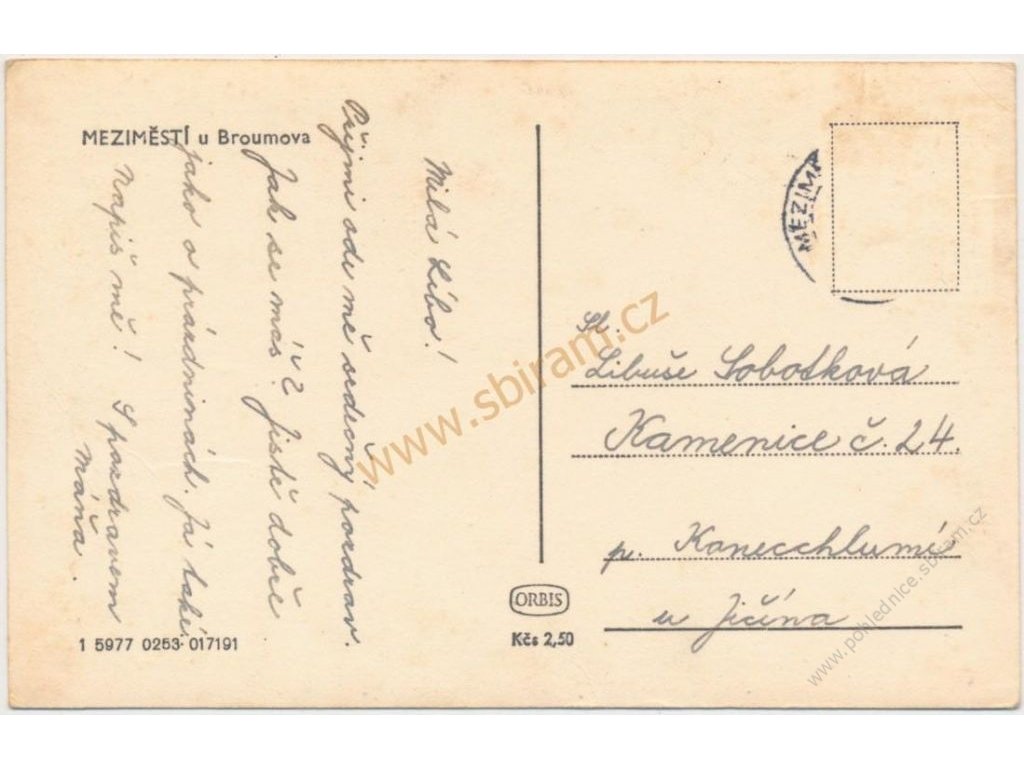 MEZIMĚSTÍ u Broumova
Milá Líbo!
Přijmi ode mě srdečný pozdrav.
Jak se máš? Jistě dobře
jako o prázdninách. Já také.
Napiš mě! S pozdravem
Máňa.
1 5977 0253 017191
MEZIM
Sl.
Libuše Sobotková
Kamenice č. 24.
p. Konecchlumí
u Jičína
ORBIS
Kčs 2,50
www.sbiram.cz
www.pohlednice.sbiram.cz